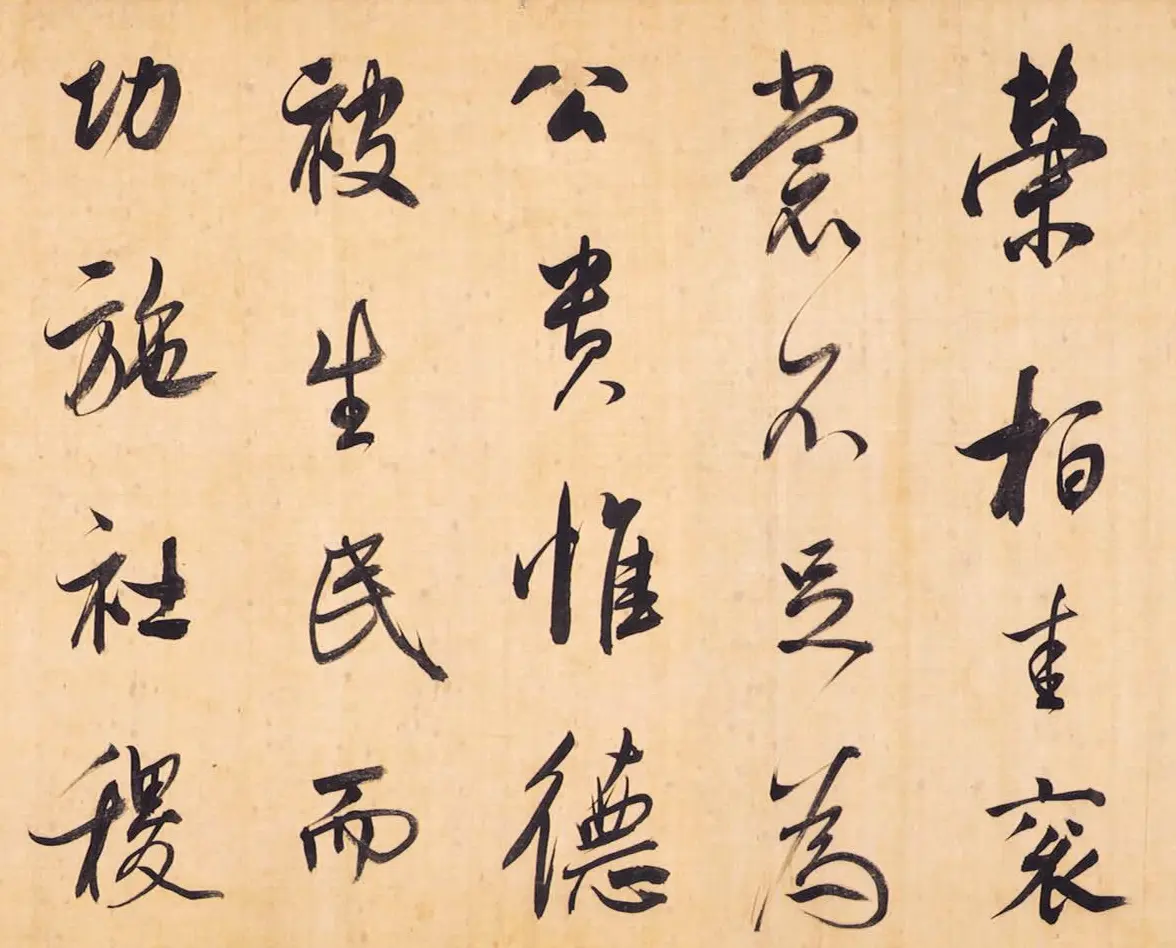 榮桓圭袞
裳不足為
公貴惟德
被生民而
功施社稷